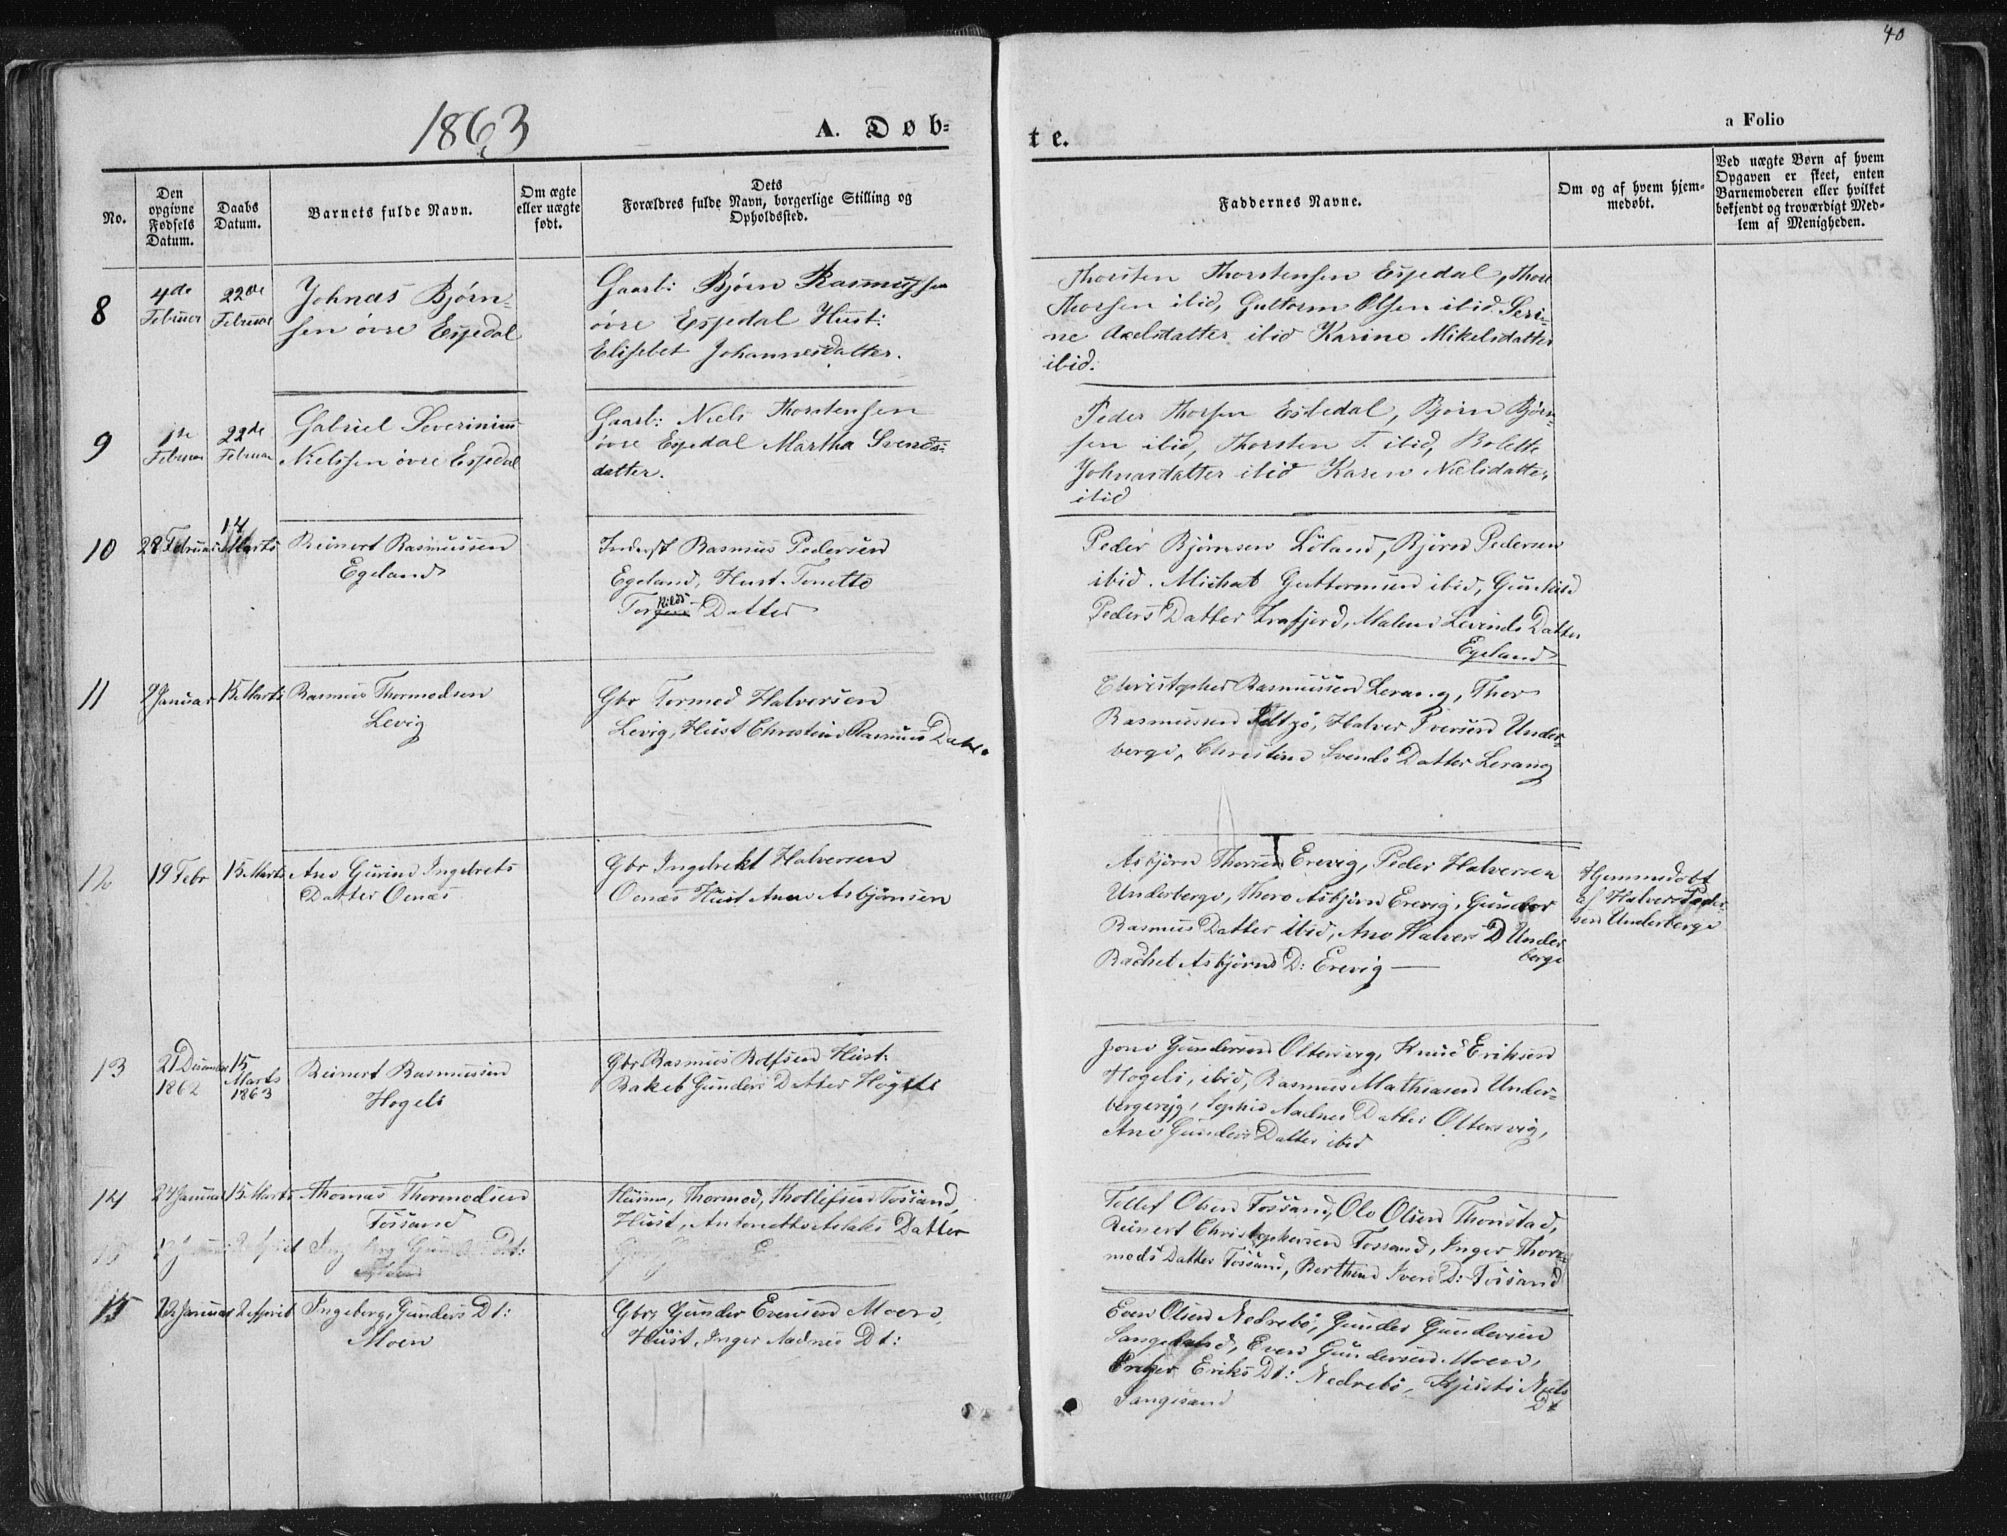 40
1863
A. Døb-
te.
a Folio
No.
Den
opgivne
Fødsels
Datum.
Daabs
Datum.
Barnets fulde Navn.
Om ægte
eller uægte
født.
Dets
Forældres fulde Navn, borgerlige Stilling og
Opholdssted.
Faddernes Navne.
Om og af hvem hjem-
medøbt.
Ved uægte Børn af hvem
Opgaven er skeet, enten
Barnemoderen eller hvilket
bekjendt og troværdigt Med-
lem af Menigheden.
8
4de
Februar
22de
Februar
Johnas Bjørn-
sen øvre Espedal
Gaarb: Bjørn Rasmussen
øvre Espedal Hust:
Elisebet Johannesdatter.
Thorsten Thorstensen Espedal, Thore
Thorsen ibid, Guttorm Olsen ibid Seri-
ne Axelsdatter ibid Karine Mikelsdatter
ibid.
9
1ste
Februar
22de
Februar
Gabriel Severinius
Nielssen øvre Espedal
Gaarb: Niels Thorstensen
øvre Espedal Martha Svends-
datter.
Peder Thorsen Espedal, Bjørn Bjørn-
sen ibid, Thorsten T. ibid, Bolette
Johnasdatter ibid Karen Nielsdatter
ibid
10
28 Februar
14
Marts
Reinert Rasmussen
Egeland
Inderst Rasmus Pedersen
Egeland, Hust. Tonette
Torkilds Datter
Peder Bjørnsen Löland, Bjørn Pedersen
ibid. Michal Guttormsen ibid, Gunhild
Peders Datter Frafjord, Malene Levinds Datter
Egeland
11
9 Januar
15 Marts
Rasmus Thormodsen
Levig
Gbr Tormod Halversen
Levig, Hust Christine Rasmus Datter
Christopher Rasmussen Lerang, Thor
Rasmussen Idtzö, Halver Iversen Under-
berge, Christine Svends Datter Lerang
12
19 Febr
15 Marts
Ane Gurine Ingebrets
Datter Oenæs
Gbr Ingebrekt Halversen
Oenæs Hust Ane Asbjörnsen
Asbjörn Thorsen Erevig, Peder Halversen
Underberge, Thore Asbjörn Erevig, Gunebor
Rasmus Datter ibid, Ane Halvers D Under
berge
Rachel Asbjörns D: Erevig
Hjemmedöbt
af Halvor Peder
sen Underberge
13
21 December
1862
15
Marts
1863
Reinert Rasmussen
Hogeli
Gbr Rasmus Rolfsen Hust:
Rakel Gunders Datter Högeli
Jone Gundersen Oltesvig, Knud Eriksen
Hogeli, ibid, Rasmus Mathiasen Under-
bergerejg, Sophie Aadnes Datter Oltesvig,
Ane Gunders Datter ibid
14
24 Januar
15 Marts
Thomas Thormodsen
Fossand
Husm, Thormod, Thollefsen Fossand,
Hust, Antonette Aslaks Datter
Tollef Olsen Fossand, Ole Olsen Thonstad,
Reinert Christophersen Fossand, Inger Thor-
mods Datter Fossand, Berthine Ivers D: Fossand
15
13 Januar
2 April
Ingeberg, Gunders Dt:
Moen
Gbr, Gunder Evensen Moen,
Hust, Inger Aadnes Dt:
Even Olsen Nedrebö, Gunder Gundersen
Sangesand, Even Gundersen Moen,
Inger Eriks Dt: Nedrebö, Kjisti Niels
Dt
Sangesand